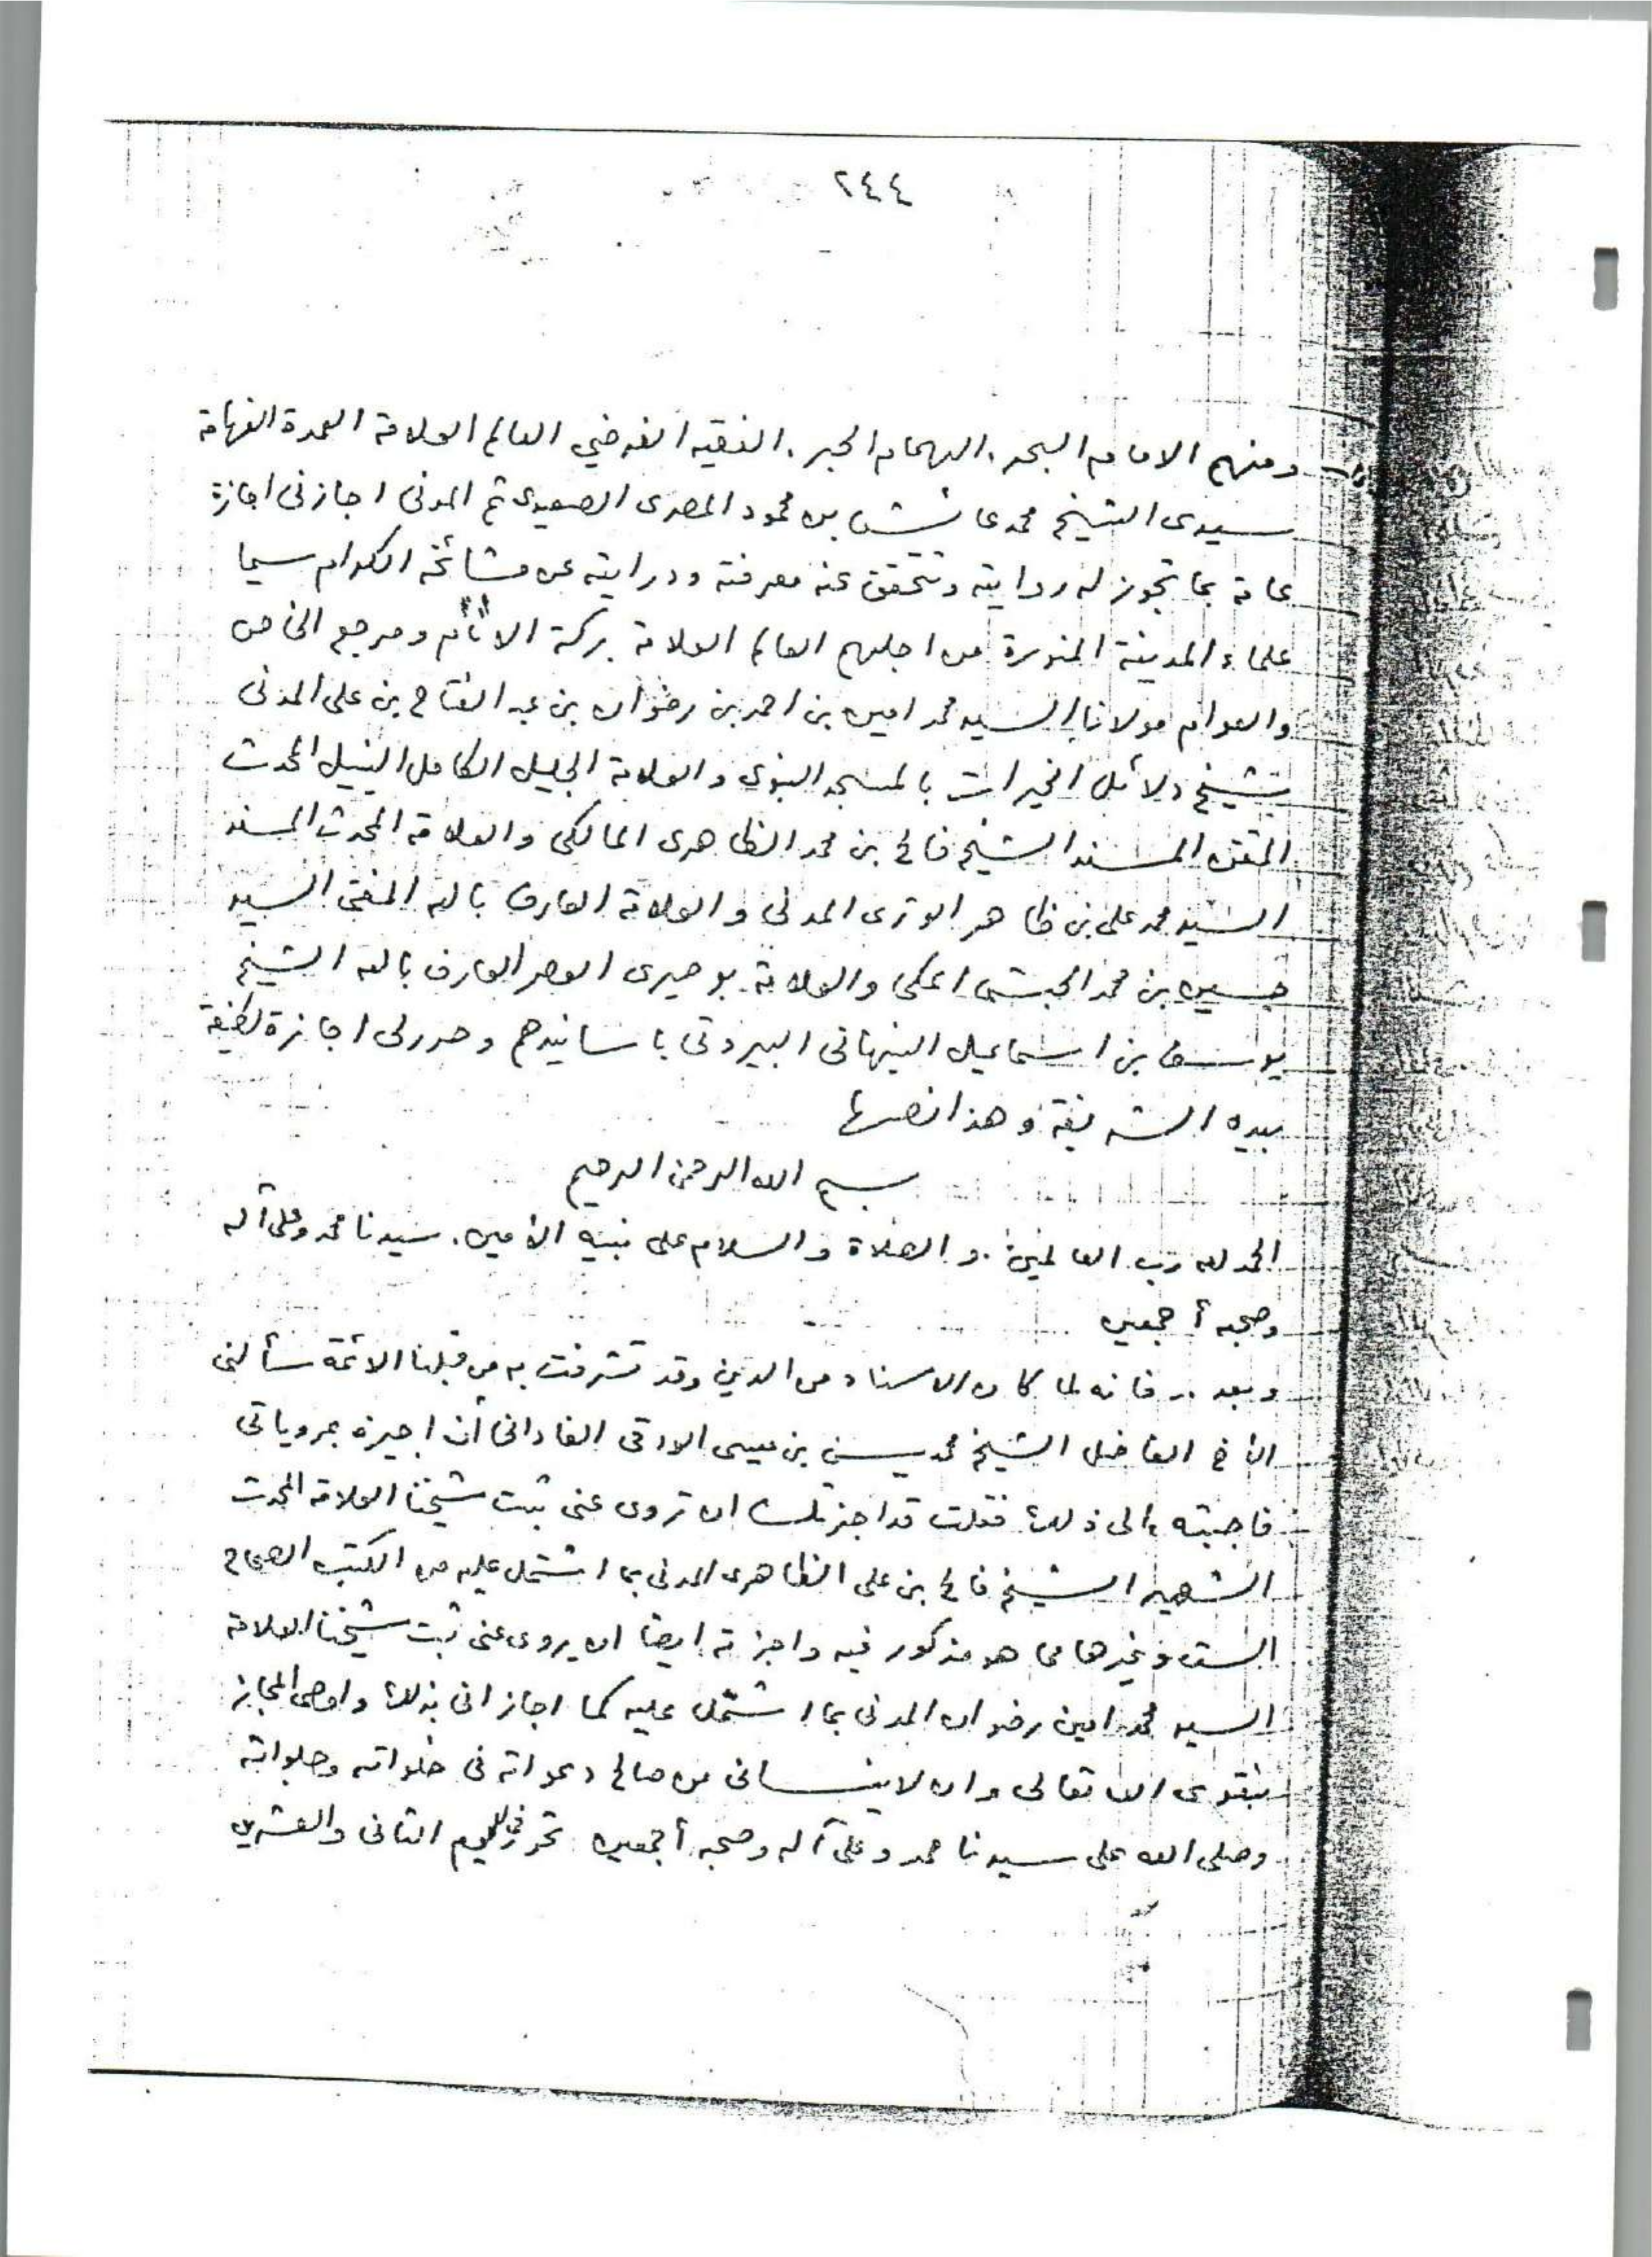 ٢٤٤
ومنهم الامام البحر. الهمام الحبر. الفقيه الفرضي العالم العلامة العمدة الفهامة
سيدى الشيخ محمد عائش بن محمود المصرى الصعيدى ثم المدنى اجازنى اجازة
عامة بما تجوز له روايته وتتحقق عنه معرفته ودرايته عن مشائخه الكرام سيما
علماء المدينة المنورة من اجلهم العالم العلامة بركة الانام ومرجع الخاص
والعوام مولانا السيد محمد امين بن احمد بن رضوان بن عبد الفتاح بن على المدنى
شيخ دلائل الخيرات بالمسجد النبوى والعلامة الجليل الكامل النبيل المحدث
المتقن المسند الشيخ فالح بن محمد الظاهرى المالكى والعلامة المحدث المسند
السيد محمد على بن ظاهر الوترى المدنى والعلامة العارف بالله المفتى السيد
حسين بن محمد الحبشى المكى والعلامة بوصيرى العصر العارف بالله الشيخ
يوسف بن اسماعيل النبهانى البيروتى باسانيدهم وحرر لى اجازة لطيفة
بيده الشريفة وهذا نصها
بسم الله الرحمن الرحيم
الحمد لله رب العالمين. والصلاة والسلام على نبيه الأمين. سيدنا محمد وعلى آله
وصحبه أجمعين
وبعد .. فانه لما كان الاسناد من الدين وقد تشرفت به من قبلنا الائمة سألنى
الأخ الفاضل الشيخ محمد يسن بن عيسى الفادانى أن اجيزه بمروياتى
فاجبته الى ذلك فقلت قد اجزتك ان تروى عنى ثبت شيخنا العلامة المحدث
الشهير الشيخ فالح بن على الظاهرى المدنى بما اشتمل عليه من الكتب الصحاح
الست وغيرها مما هو مذكور فيه واجزته ايضا ان يروى عنى ثبت شيخنا العلامة
السيد محمد امين رضوان المدنى بما اشتمل عليه كما اجازانى بذلك واوصى المجاز
بتقوى الله تعالى وان لا ينسانى من صالح دعواته فى خلواته وجلواته
وصلى الله على سيدنا محمد وعلى آله وصحبه أجمعين تحرر فى اليوم الثانى والعشرين